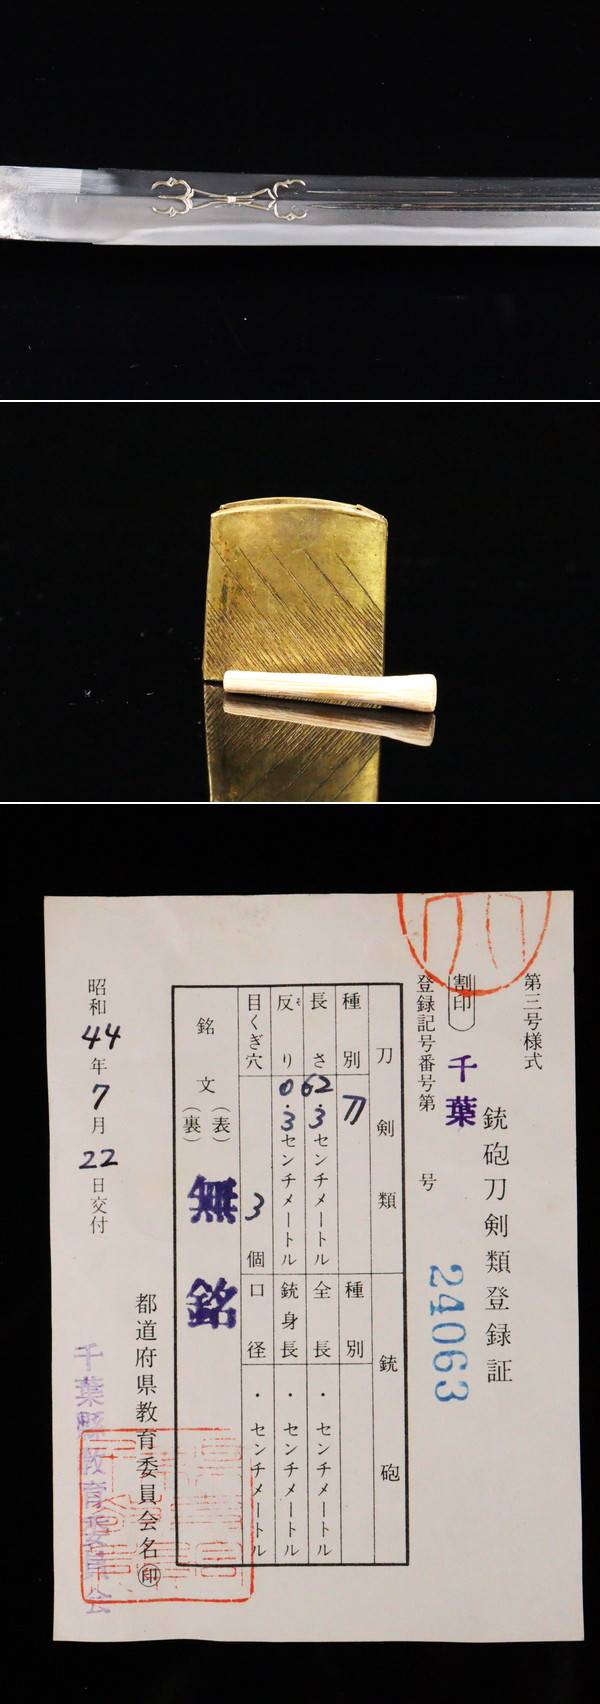 第三号様式
銃砲刀剣類登録証
割印
千葉
登録記号番号第 号
24063
刀剣類
種別 刀
長さ 62.3センチメートル
反り 0.3センチメートル
目くぎ穴 3個
銘文
(表)
(裏)
無銘
銃砲
種別
全長 ・ センチメートル
銃身長 ・ センチメートル
口径 ・ センチメートル
昭和44年7月22日交付
都道府県教育委員会名㊞
千葉縣教育委員会